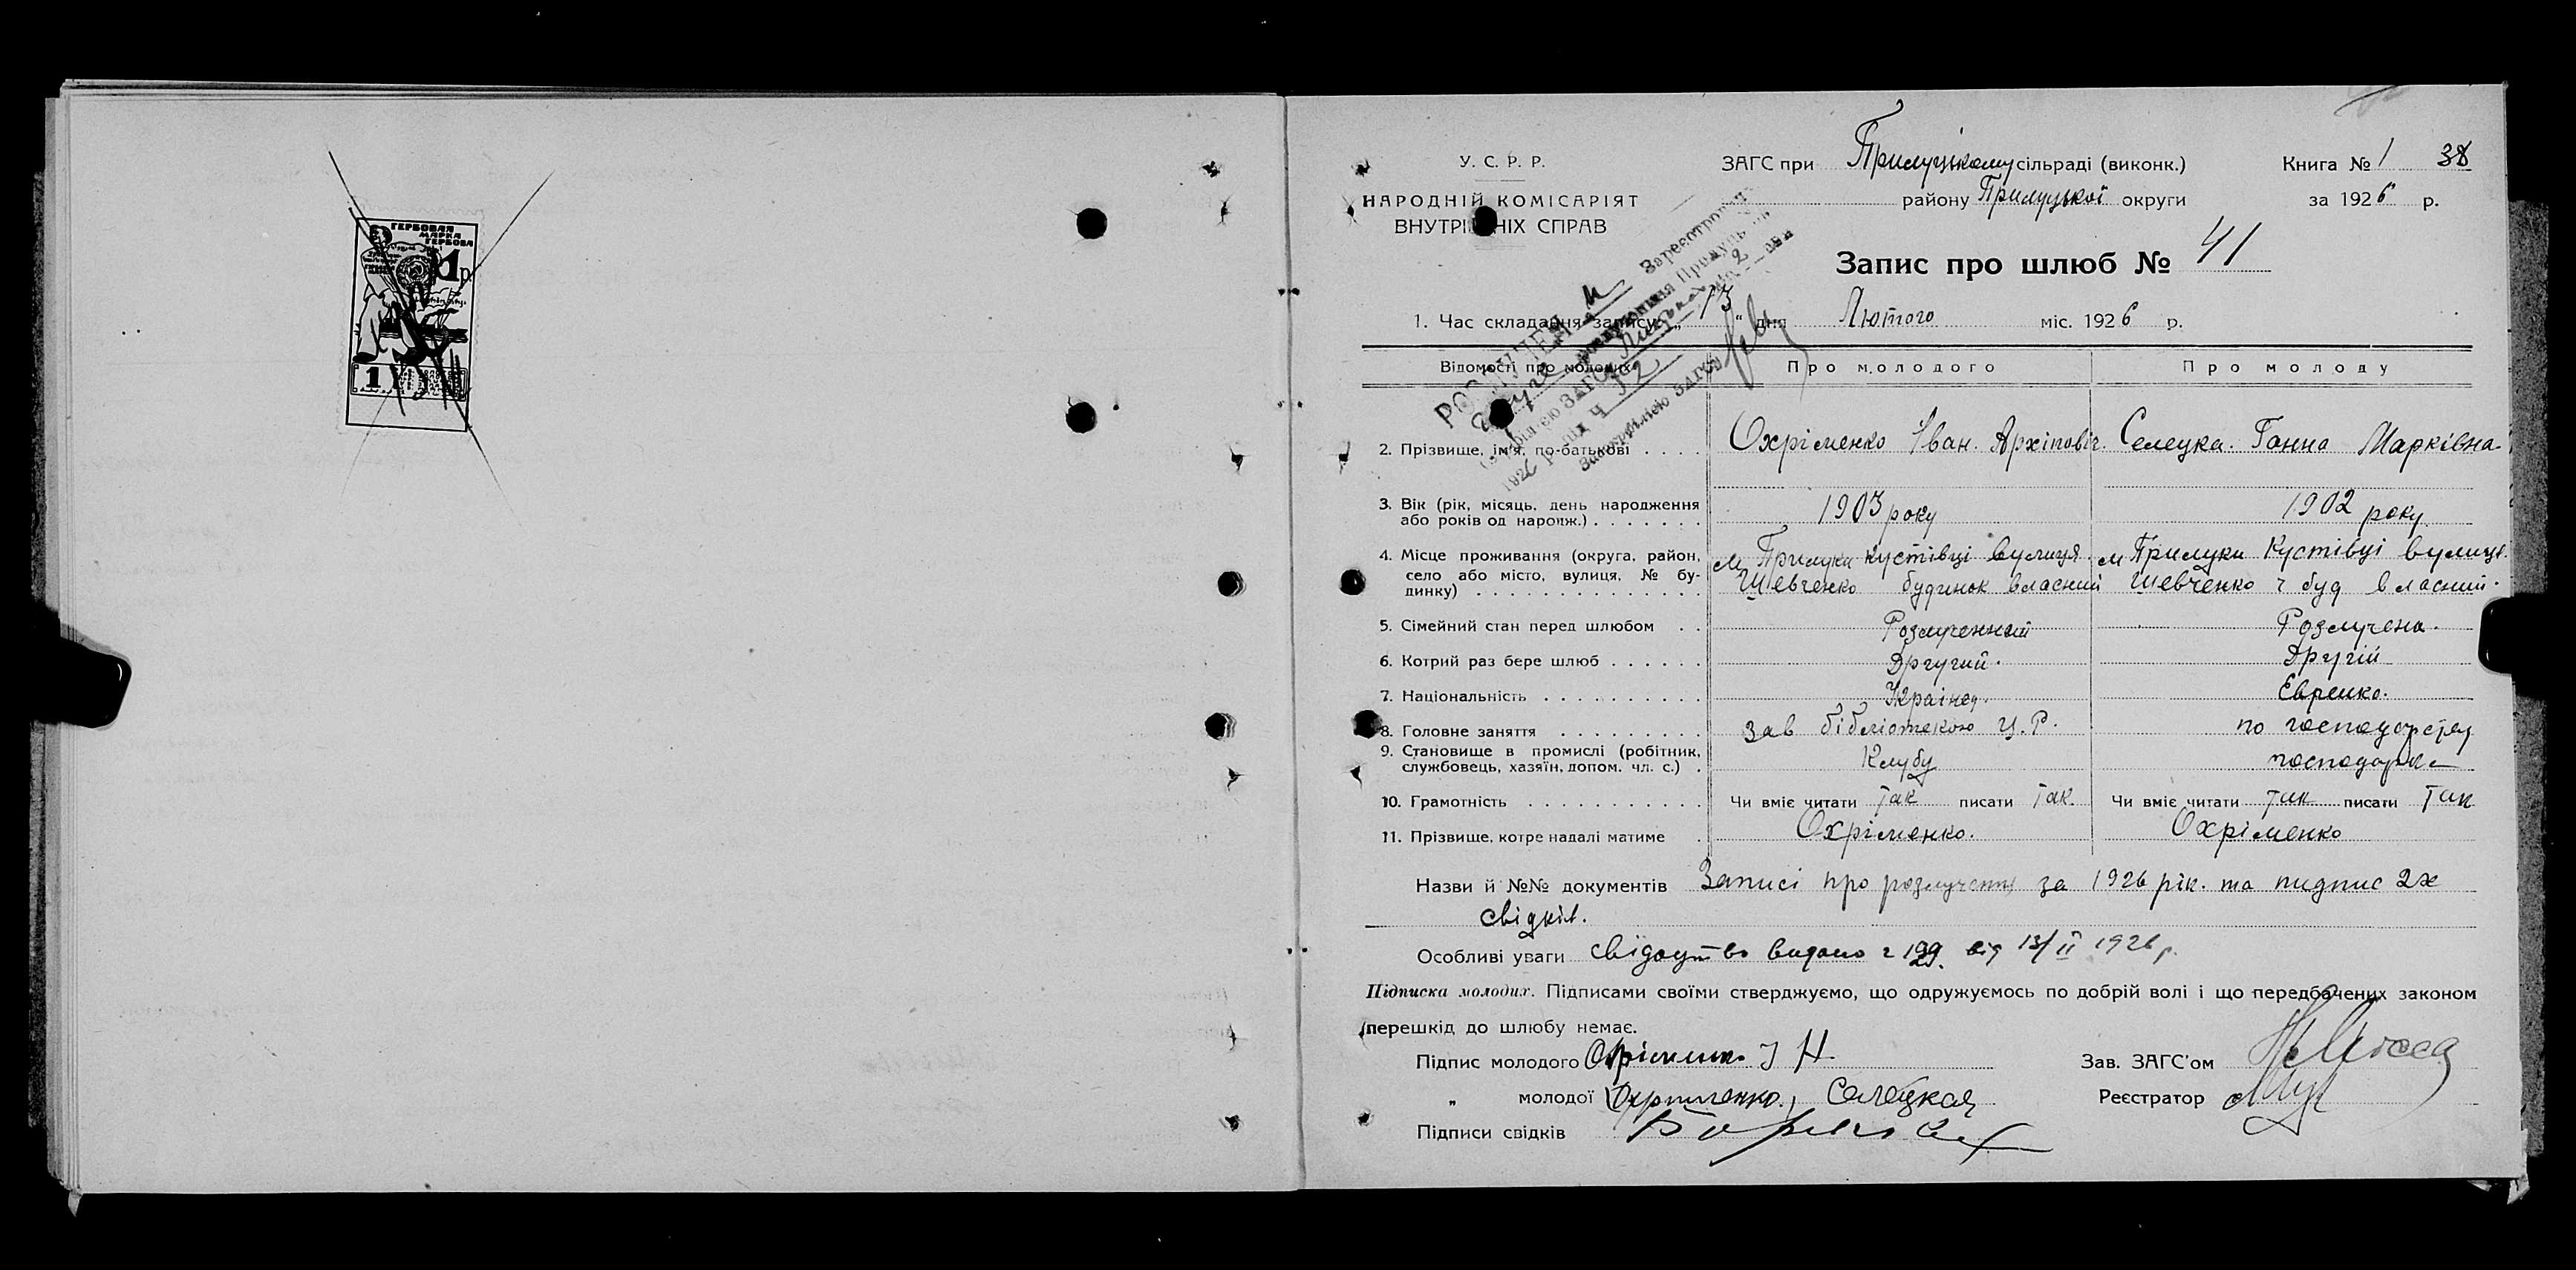 ГЕРБОВАЯ
МАРКА
ГЕРБОВА
1 р.
1
У. С. Р. Р.
НАРОДНІЙ КОМІСАРІЯТ
ВНУТРІШНІХ СПРАВ
ЗАГС при Прилуцькому сільраді (виконк.)
району Прилуцької округи
Книга № 1 38
за 1926 р.
Запис про шлюб № 41
1. Час складання запису „13“ дня Лютого міс. 1926 р.
Відомості про молодих Про молодого Про молоду
2. Прізвище, ім'я, по-батькові . . . . Охріменко Іван. Архіповіч. Селецка. Ганна Марківна
3. Вік (рік, місяць, день народження
або років од нароож.) . . . . . . . 1903 року 1902 року
4. Місце проживання (округа, район, м Прилуки Кустівці вулиця м Прилуки Кустівці вулиця.
село або місто, вулиця, № бу- Шевченко будинок власний Шевченко ч буд власний.
динку) . . . . . . . . . . . . . .
5. Сімейний стан перед шлюбом . . Розлученний Розлучена.
6. Котрий раз бере шлюб . . . . . . Другий. Другій
7. Національність . . . . . . . . . . Украінец. Еврейко.
8. Головне заняття . . . . . . . . . Зав бібліотекою Ц.Р. по господарству
9. Становище в промислі (робітник,
службовець, хазяїн, допом. чл. с.) . Клубу господарка
10. Грамотність . . . . . . . . . . . Чи вміє читати так писати так. Чи вміє читати так писати так
11. Прізвище, котре надалі матиме . Охріменко. Охріменко
Назви й №№ документів Записі про розлучення за 1926 рік. та пидпис 2х
свідків.
Особливі уваги свідоцтво видано ч 199. від 13/II 1926 р.
Підписка молодих. Підписами своїми стверджуємо, що одружуємось по добрій волі і що передбачених законом
перешкід до шлюбу немає.
Підпис молодого Зав. ЗАГС'ом
„ молодої Охрименко, Селецкая Реєстратор
Підписи свідків